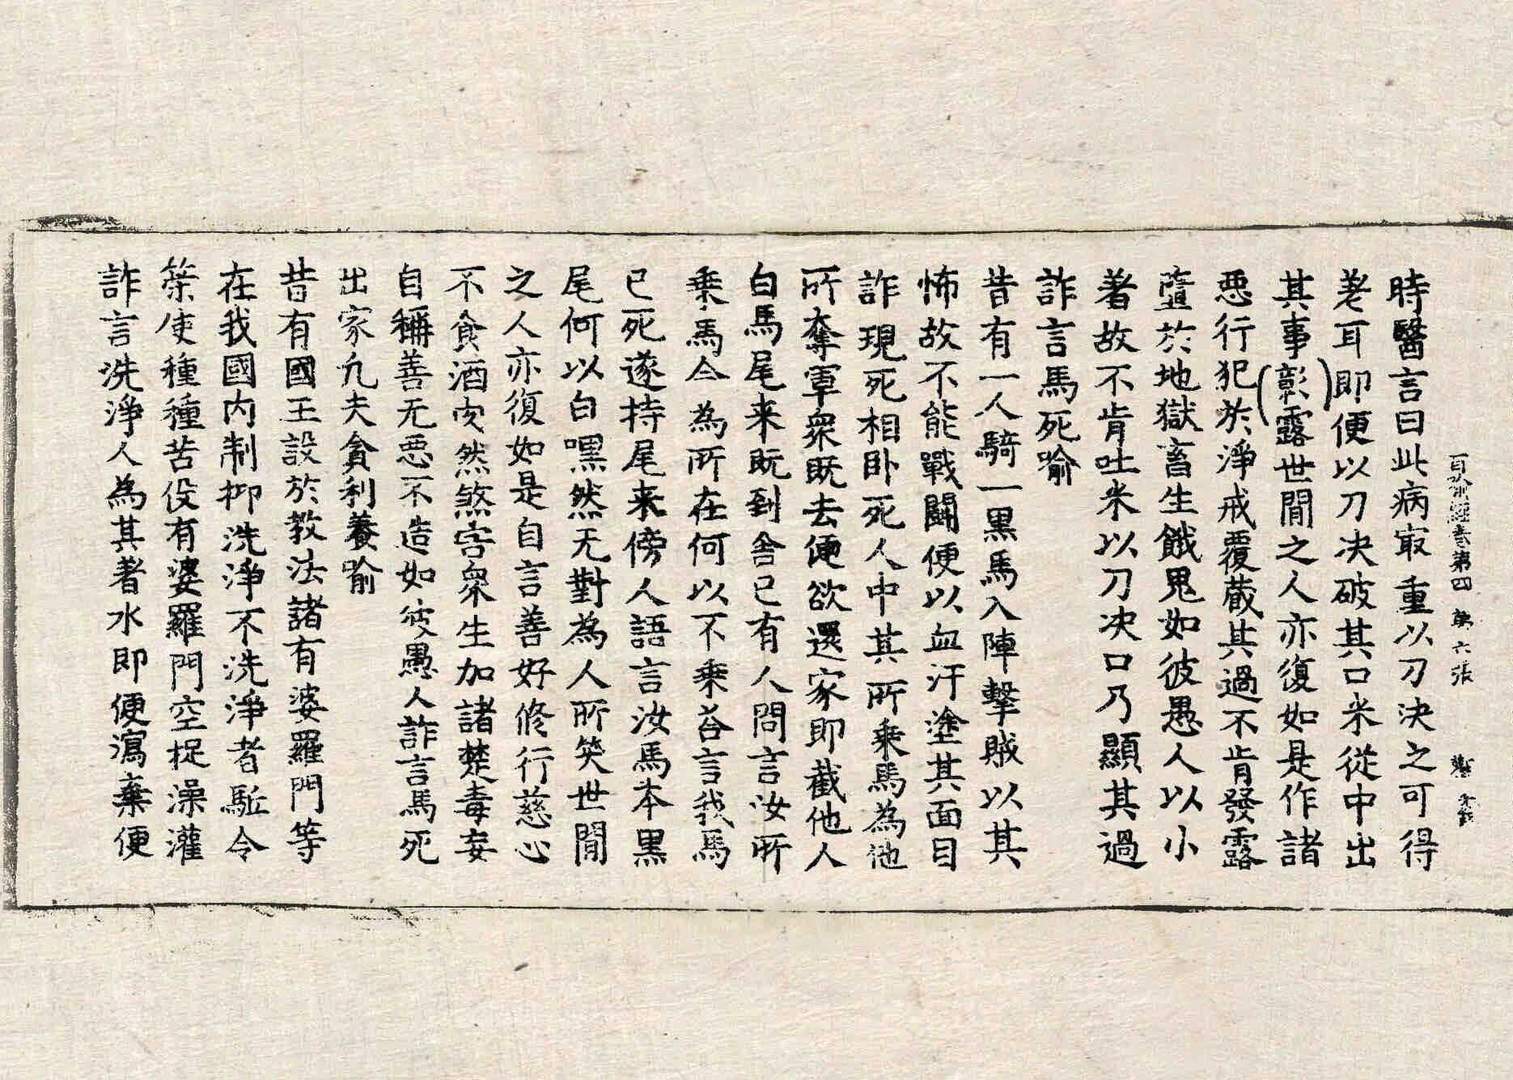 百喻經卷第四　第六張
時醫言曰此病㝡重以刀決之可得
差耳即便以刀決破其口米從中出
其事彰露世間之人亦復如是作諸
惡行犯於淨戒覆蔵其過不肯發露
墮於地獄畜生餓鬼如彼愚人以小
著故不肯吐米以刀決口乃顯其過
詐言馬死喻
昔有一人騎一黑馬入陣擊賊以其
怖故不能戰鬪便以血汙塗其面目
詐現死相卧死人中其所乘馬為他
所奪軍衆既去便欲還家即截他人
白馬尾来既到舍已有人問言汝所
乘馬今為所在何以不乘荅言我馬
已死遂持尾来傍人語言汝馬本黑
尾何以白嘿然无對為人所笑世間
之人亦復如是自言善好修行慈心
不食酒肉然煞害衆生加諸楚毒妄
自稱善无惡不造如彼愚人詐言馬死
出家凡夫貪利養喻
昔有國王設於教法諸有婆羅門等
在我國内制抑洗淨不洗淨者駈令
策使種種苦役有婆羅門空捉澡灌
詐言洗淨人為其著水即便瀉棄便